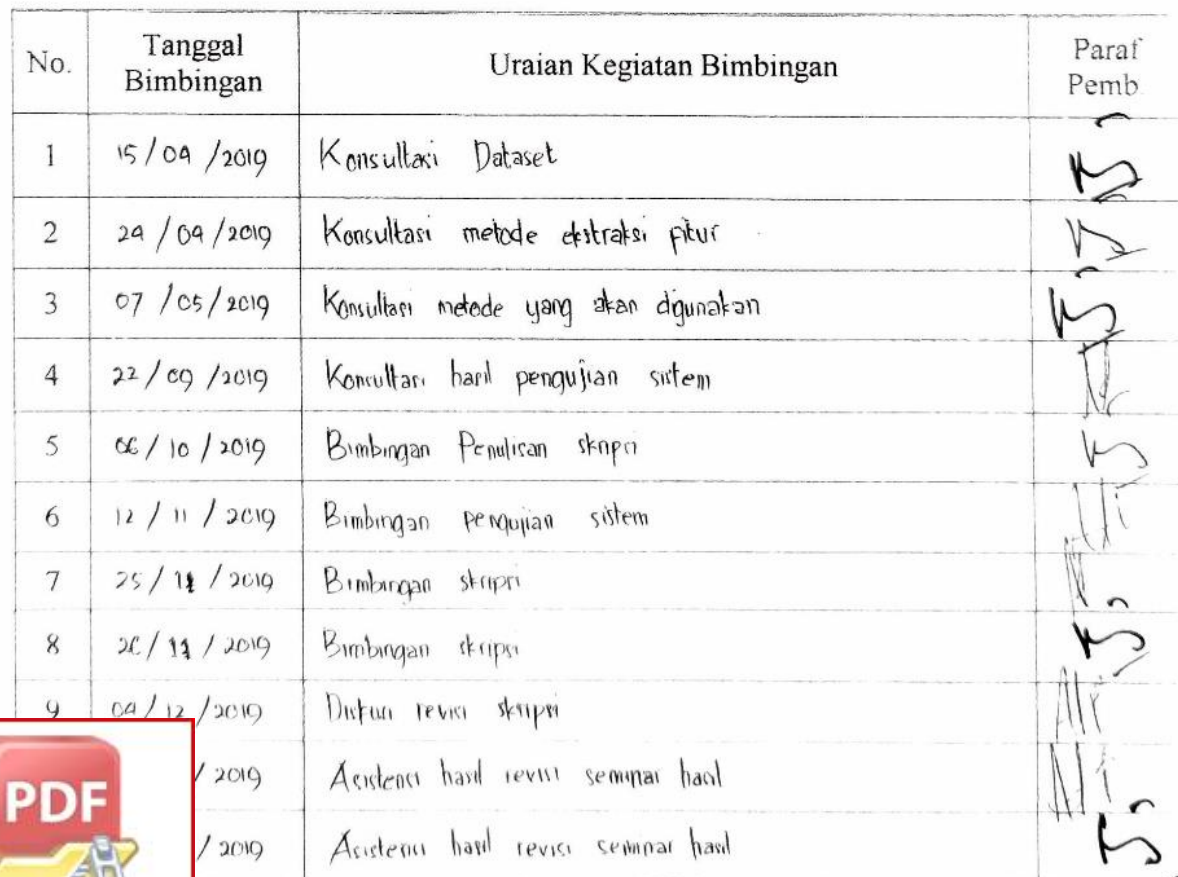 No. Tanggal Bimbingan Uraian Kegiatan Bimbingan Paraf Pemb
1 15/04/2019 Konsultasi Dataset
2 24/04/2019 Konsultasi metode ekstraksi fitur
3 07/05/2019 Konsultasi metode yang akan digunakan
4 22/09/2019 Konsultasi hasil pengujian sistem
5 06/10/2019 Bimbingan Penulisan skripsi
6 12/11/2019 Bimbingan pengujian sistem
7 25/11/2019 Bimbingan skripsi
8 26/11/2019 Bimbingan skripsi
9 04/12/2019 Diskusi revisi skripsi
/2019 Asistensi hasil revisi seminar hasil
/2019 Asistensi hasil revisi seminar hasil
PDF